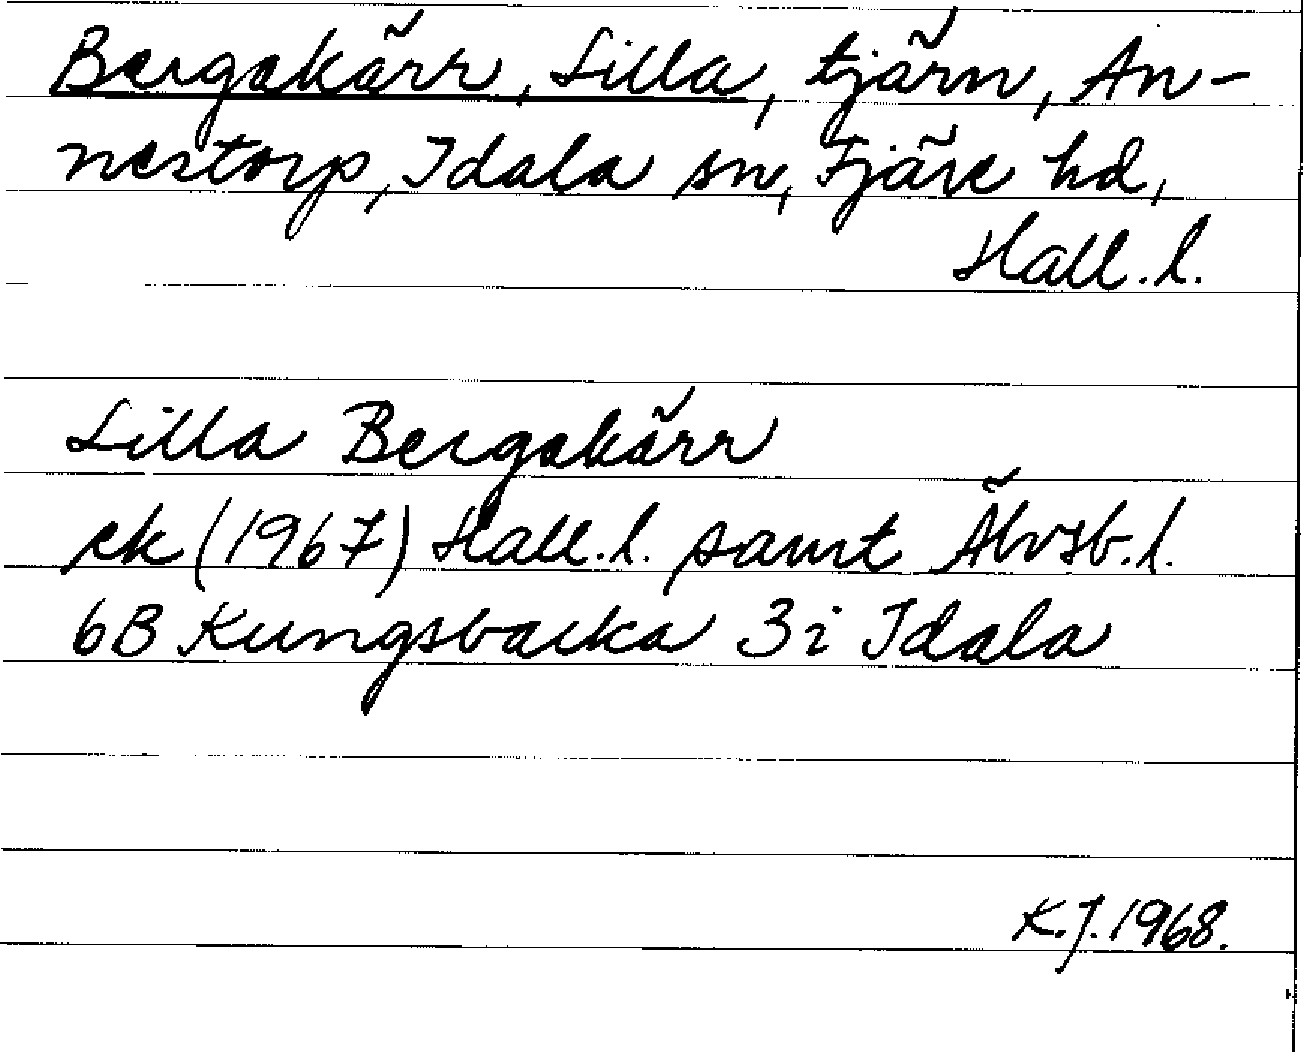 Bergakärr, Lilla, tjärn, An-
nestorp, Idala sn, Fjäre hd,
Hall. l.
Lilla Bergakärr
ek (1967) Hall. l. samt Älvsb. l.
6B Kungsbacka 3i Idala
K.J. 1968.